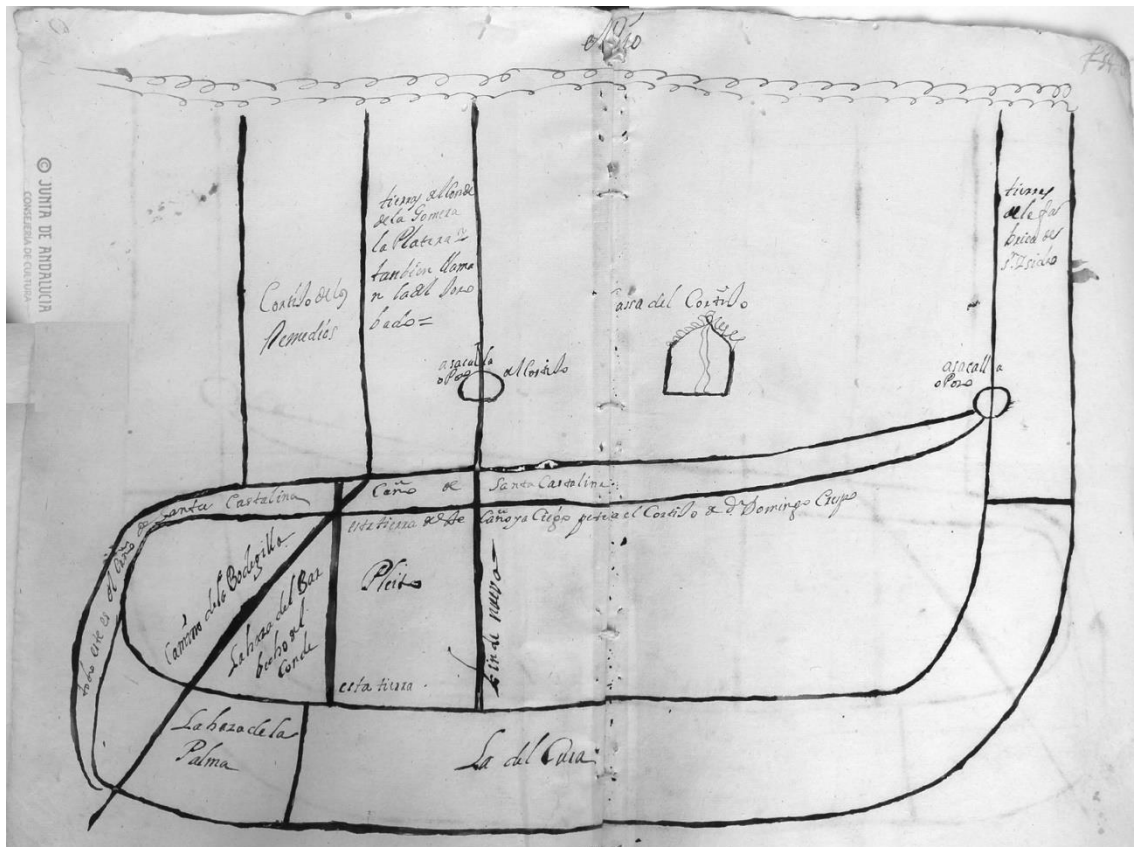 el Rio
© JUNTA DE ANDALUCIA
CONSEJERIA DE CULTURA
tierras del Conde
de la Gomera
la Platera
tanbien llama
n la del Joro
bado =
Cortijo de los
Remedios
tierras
de la fa
brica de
Sn Isidro
Cassa del Cortijo
asacalla
o Pozo
del Cortijo
asacalla
o Pozo
todo este es el Caño de Santa Castalina
Caño de Santa Castalina
esta tierra de Caño ya Ciego para el Cortijo de Dn Domingo Crespo
Camino de la Bodegilla
La haza del Bar
becho del
Conde
Pleito
Linde nuevo
esta tierra
La haza de la
Palma
La del Cura